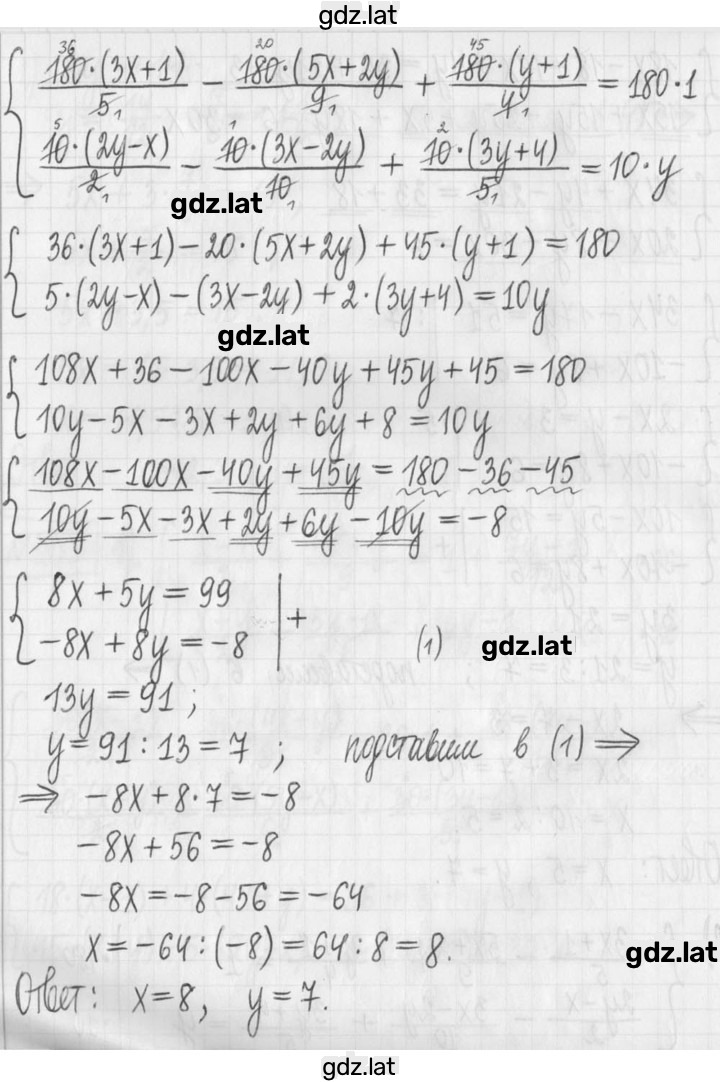 gdz.lat
36 20 45
180·(3x+1)/5₁ − 180·(5x+2y)/9₁ + 180·(y+1)/4₁ = 180·1
5 1 2
10·(2y−x)/2₁ − 10·(3x−2y)/10₁ + 10·(3y+4)/5₁ = 10·y
gdz.lat
36·(3x+1)−20·(5x+2y)+45·(y+1)=180
5·(2y−x)−(3x−2y)+2·(3y+4)=10y
gdz.lat
108x+36−100x−40y+45y+45=180
10y−5x−3x+2y+6y+8=10y
108x−100x−40y+45y=180−36−45
10y−5x−3x+2y+6y−10y=−8
8x+5y=99
+
−8x+8y=−8 (1) gdz.lat
13y=91;
y=91:13=7; подставим в (1) ⇒
⇒ −8x+8·7=−8
−8x+56=−8
−8x=−8−56=−64
x=−64:(−8)=64:8=8.
gdz.lat
Ответ: x=8, y=7.
gdz.lat